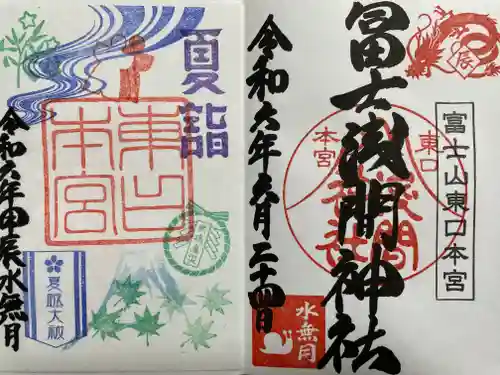 辰
冨士浅間神社
東口
本宮
浅間
神社
富士山東口本宮
令和六年六月二十四日
水無月
夏詣
東口
本宮
夏越大祓
令和六年甲辰水無月